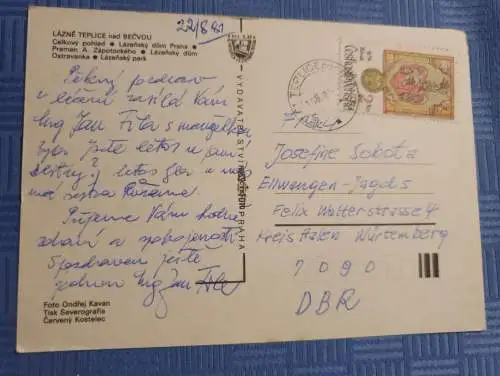 LÁZNĚ TEPLICE nad BEČVOU
Celkový pohled ● Lázeňský dům Praha ●
Pramen A. Zápotockého ● Lázeňský dům
Ostravanka ● Lázeňský park
22/8 81
Pěkný pozdrav
z léčení zasílá Vám
Ing Jan Fila s manželkou
byli jste letos u
sestry? letos
má sestra Růžena.
Přejeme Vám hodně
zdraví a spokojenosti
S pozdravem ještě
jednou Ing Jan Fila
Foto Ondřej Kavan
Tisk Severografia
Červený Kostelec
VYDAVATELSTVÍ
PRAHA
TEPLICE
ČESKOSLOVENSKO
Josefine Sobota
Ellwangen-Jagds
Felix Walterstrasse 4
Kreis Aalen Würtemberg
7090
DBR